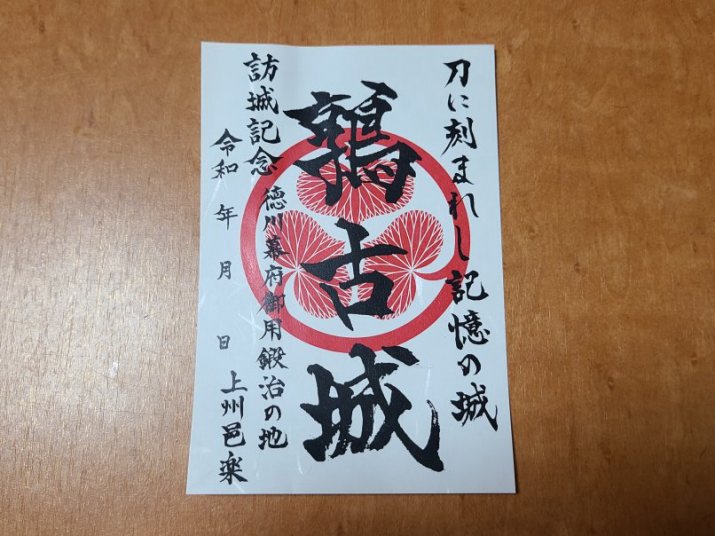 刀に刻まれし記憶の城
鶉古城
徳川幕府御用鍛治の地
訪城記念
令和 年 月 日
上州邑楽